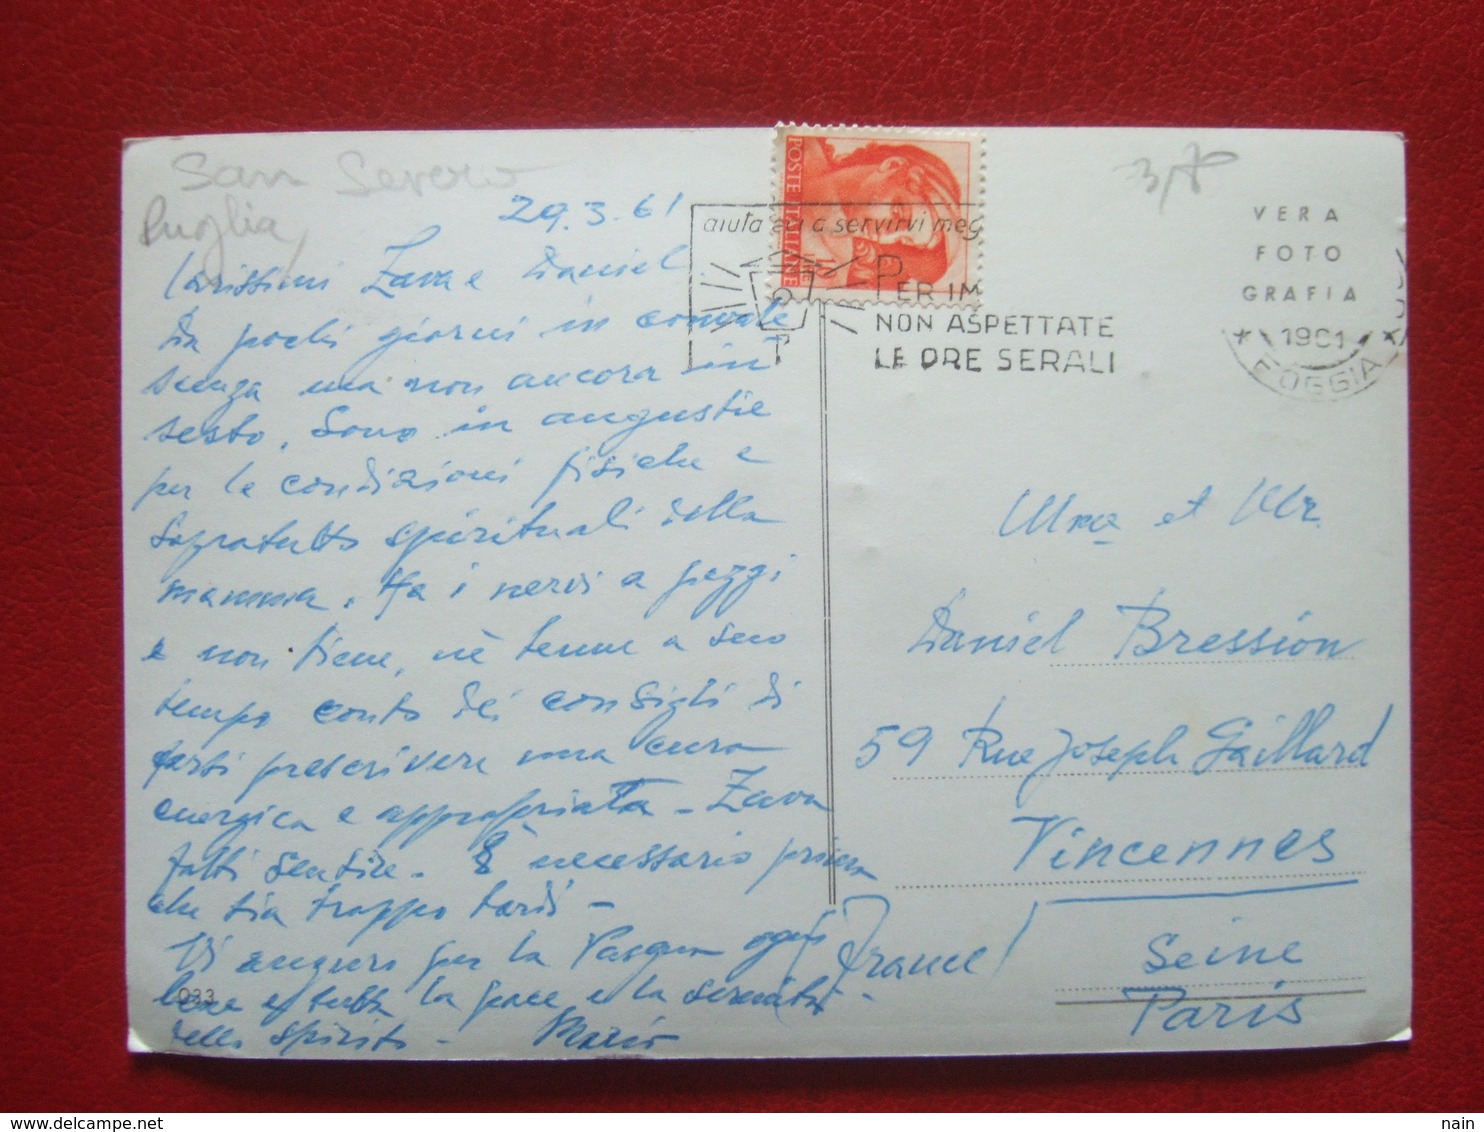 San Severo
Puglia
29.3.61
Carissimi Zava e Daniel
Da pochi giorni in convale
senza ma non ancora in
sesto. Sono in angustie
per le condizioni fisiche e
soprattutto spirituali della
mamma. Ha i nervi a pezzi
e non tiene, nè tenne a suo
tempo conto dei consigli di
farsi prescrivere una cura
energica e appropriata - Zava
fatti sentire - È necessario prima
che sia troppo tardi -
Vi auguro per la Pasqua ogni
bene e tutta la pace e la serenità
dello spirito - Mario
033
POSTE ITALIANE
aiutateci a servirvi meg
PER IM
NON ASPETTATE
LE ORE SERALI
3,70
VERA
FOTO
GRAFIA
1961
FOGGIA
Mme et Mr.
Daniel Bression
59 Rue Joseph Gaillard
Vincennes
(France)
Seine
Paris
nain